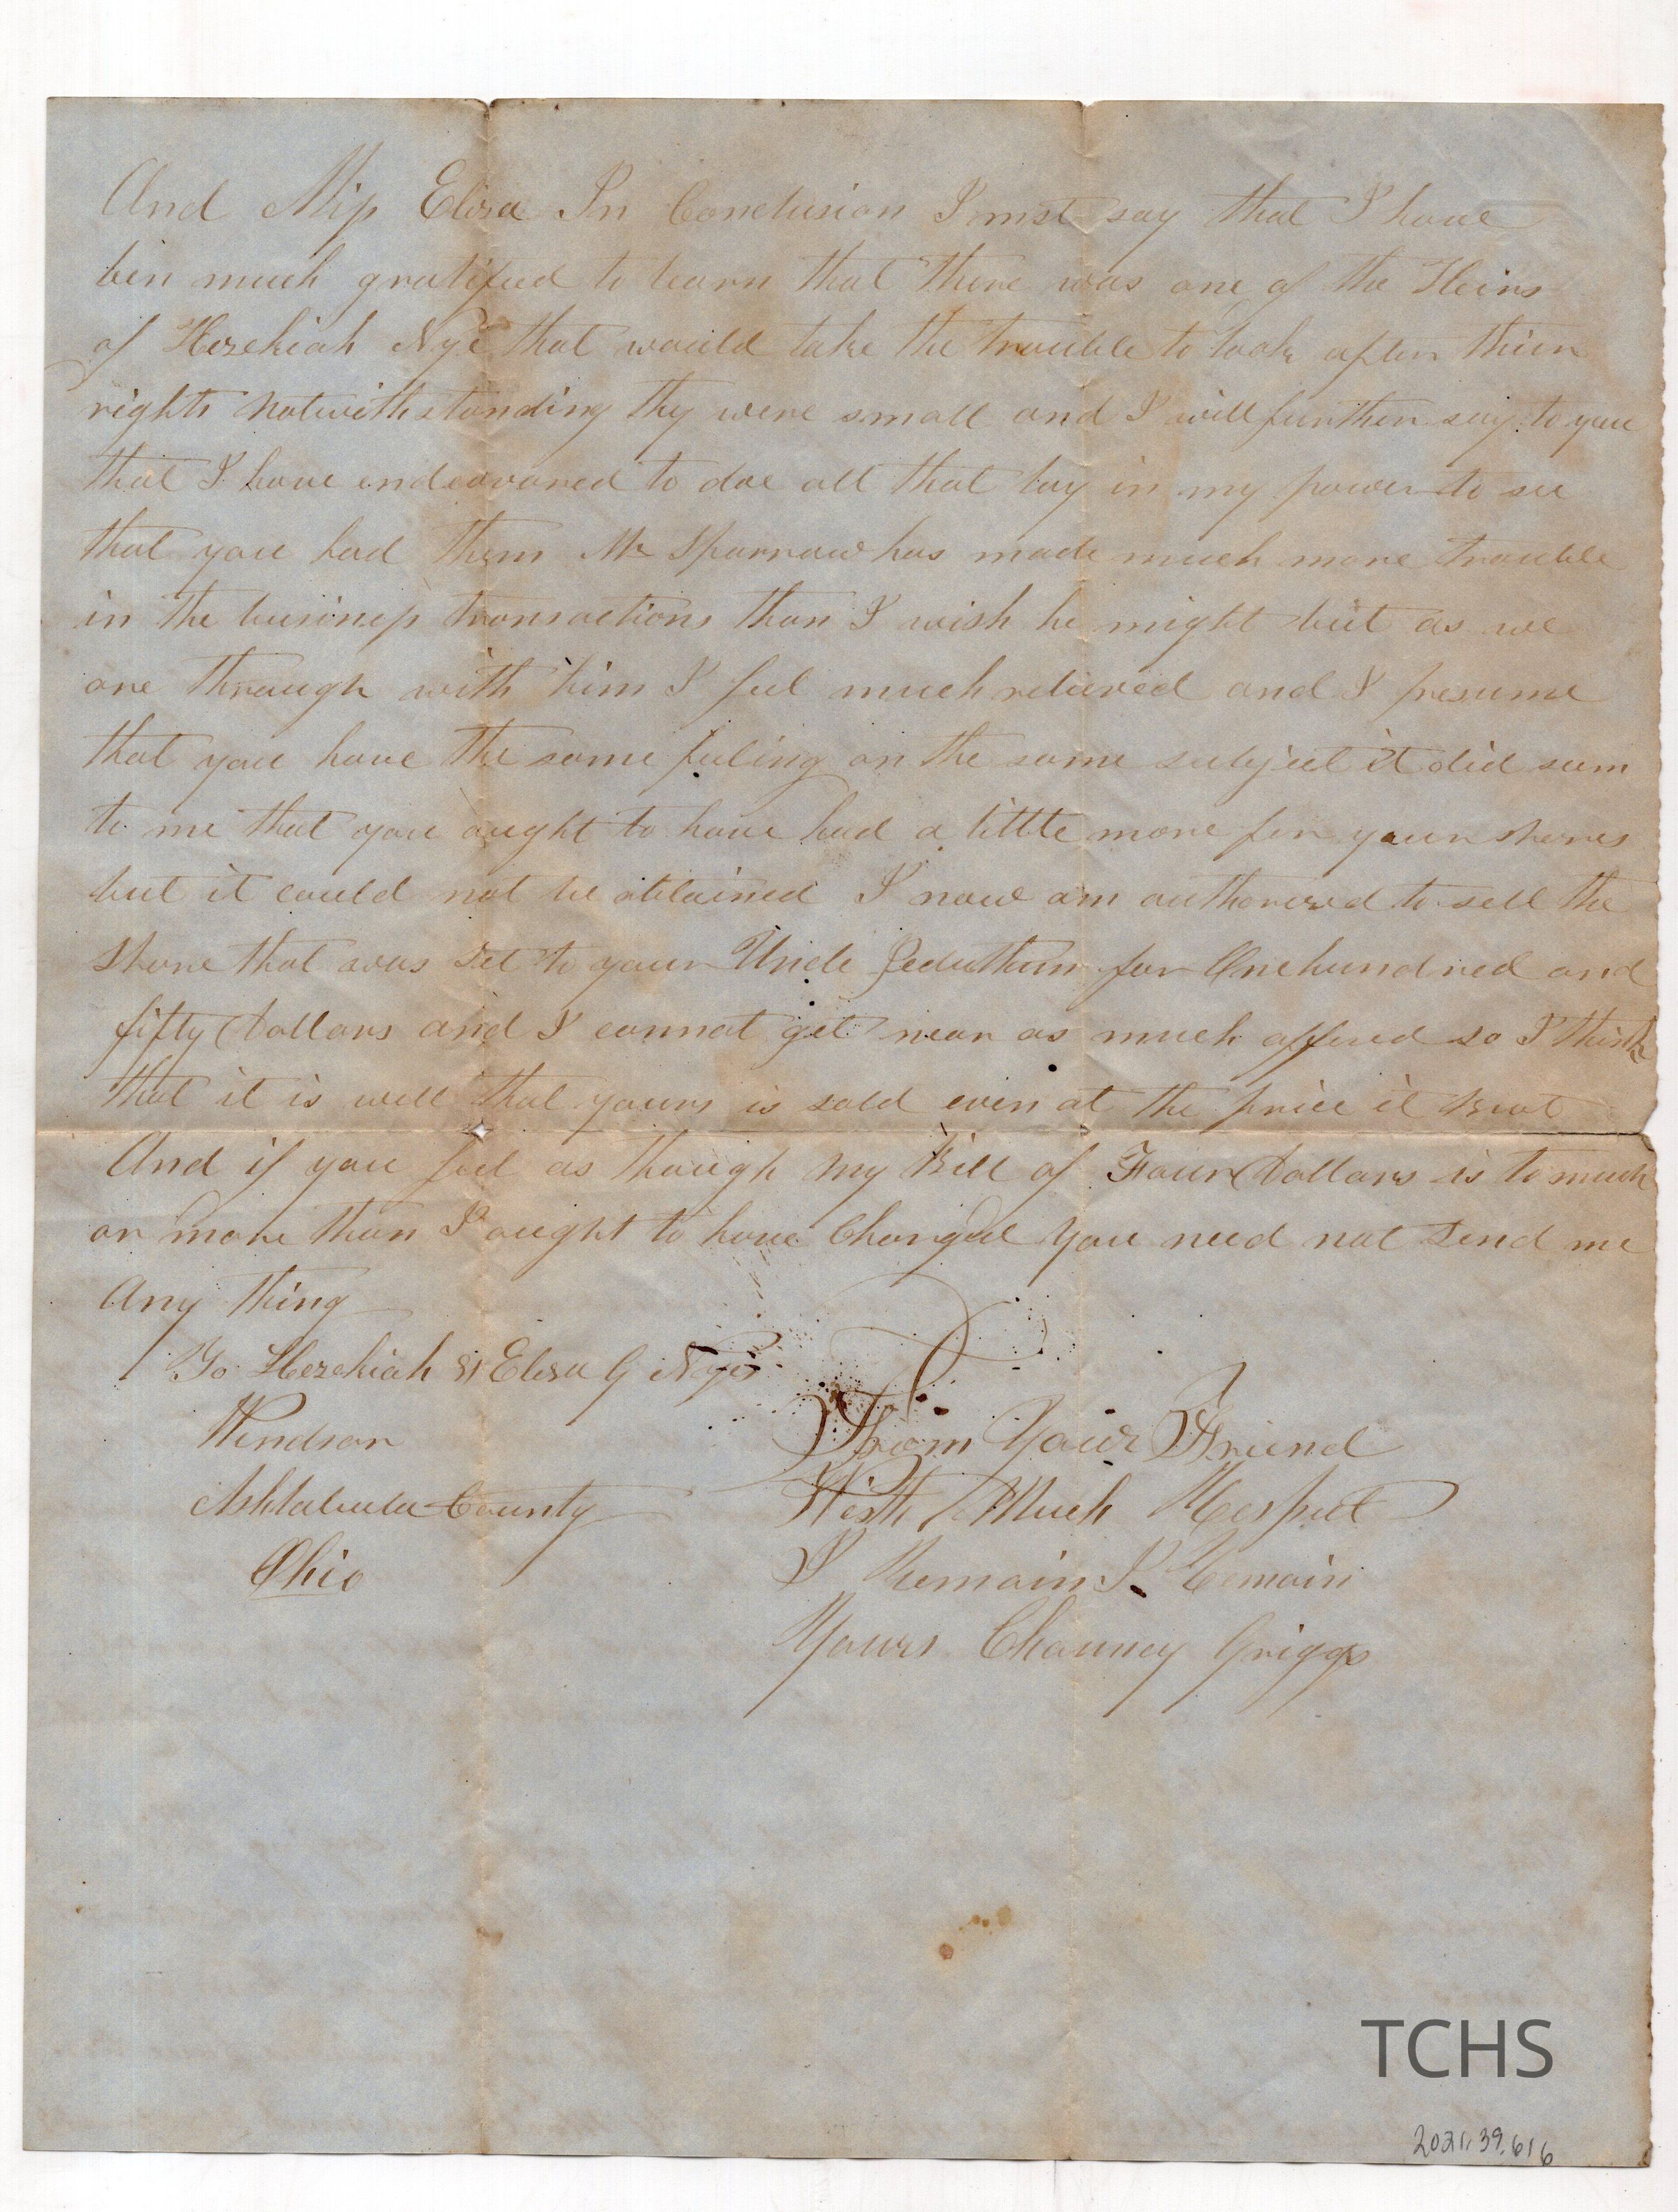 And Miss Eliza In Conclusion I must say that I have
bin much gratified to learn that there was one of the Heirs
of Hezekiah Nye that would take the trouble to look after thier
rights Notwithstanding thy were small and I will further say to you
that I have endeavored to doe all that lay in my power to see
that you had them Mr Sparrow has made much more trouble
in the business transactions than I wish he might but as we
are through with him I feel much relieved and I presume
that you have the same feeling on the same subject it did seem
to me that you ought to have had a little more for your shares
but it could not be obtained I now am authorised to sell the
Share that was set to your Uncle Jeduthun for One hundred and
fifty Dollars and I cannot get near as much offered so I think
that it is well that yours is sold even at the price it
And if you feel as though my Bill of Four Dollars is to much
or more than I ought to have Charged you need not Send me
any thing
To Hezekiah & Eliza G Nye
Windsor
Ashtabula County
Ohio
From Your Friend
With Much Respect
I Remain I Remain
Yours Chauncy Griggs
TCHS
2021.39.616